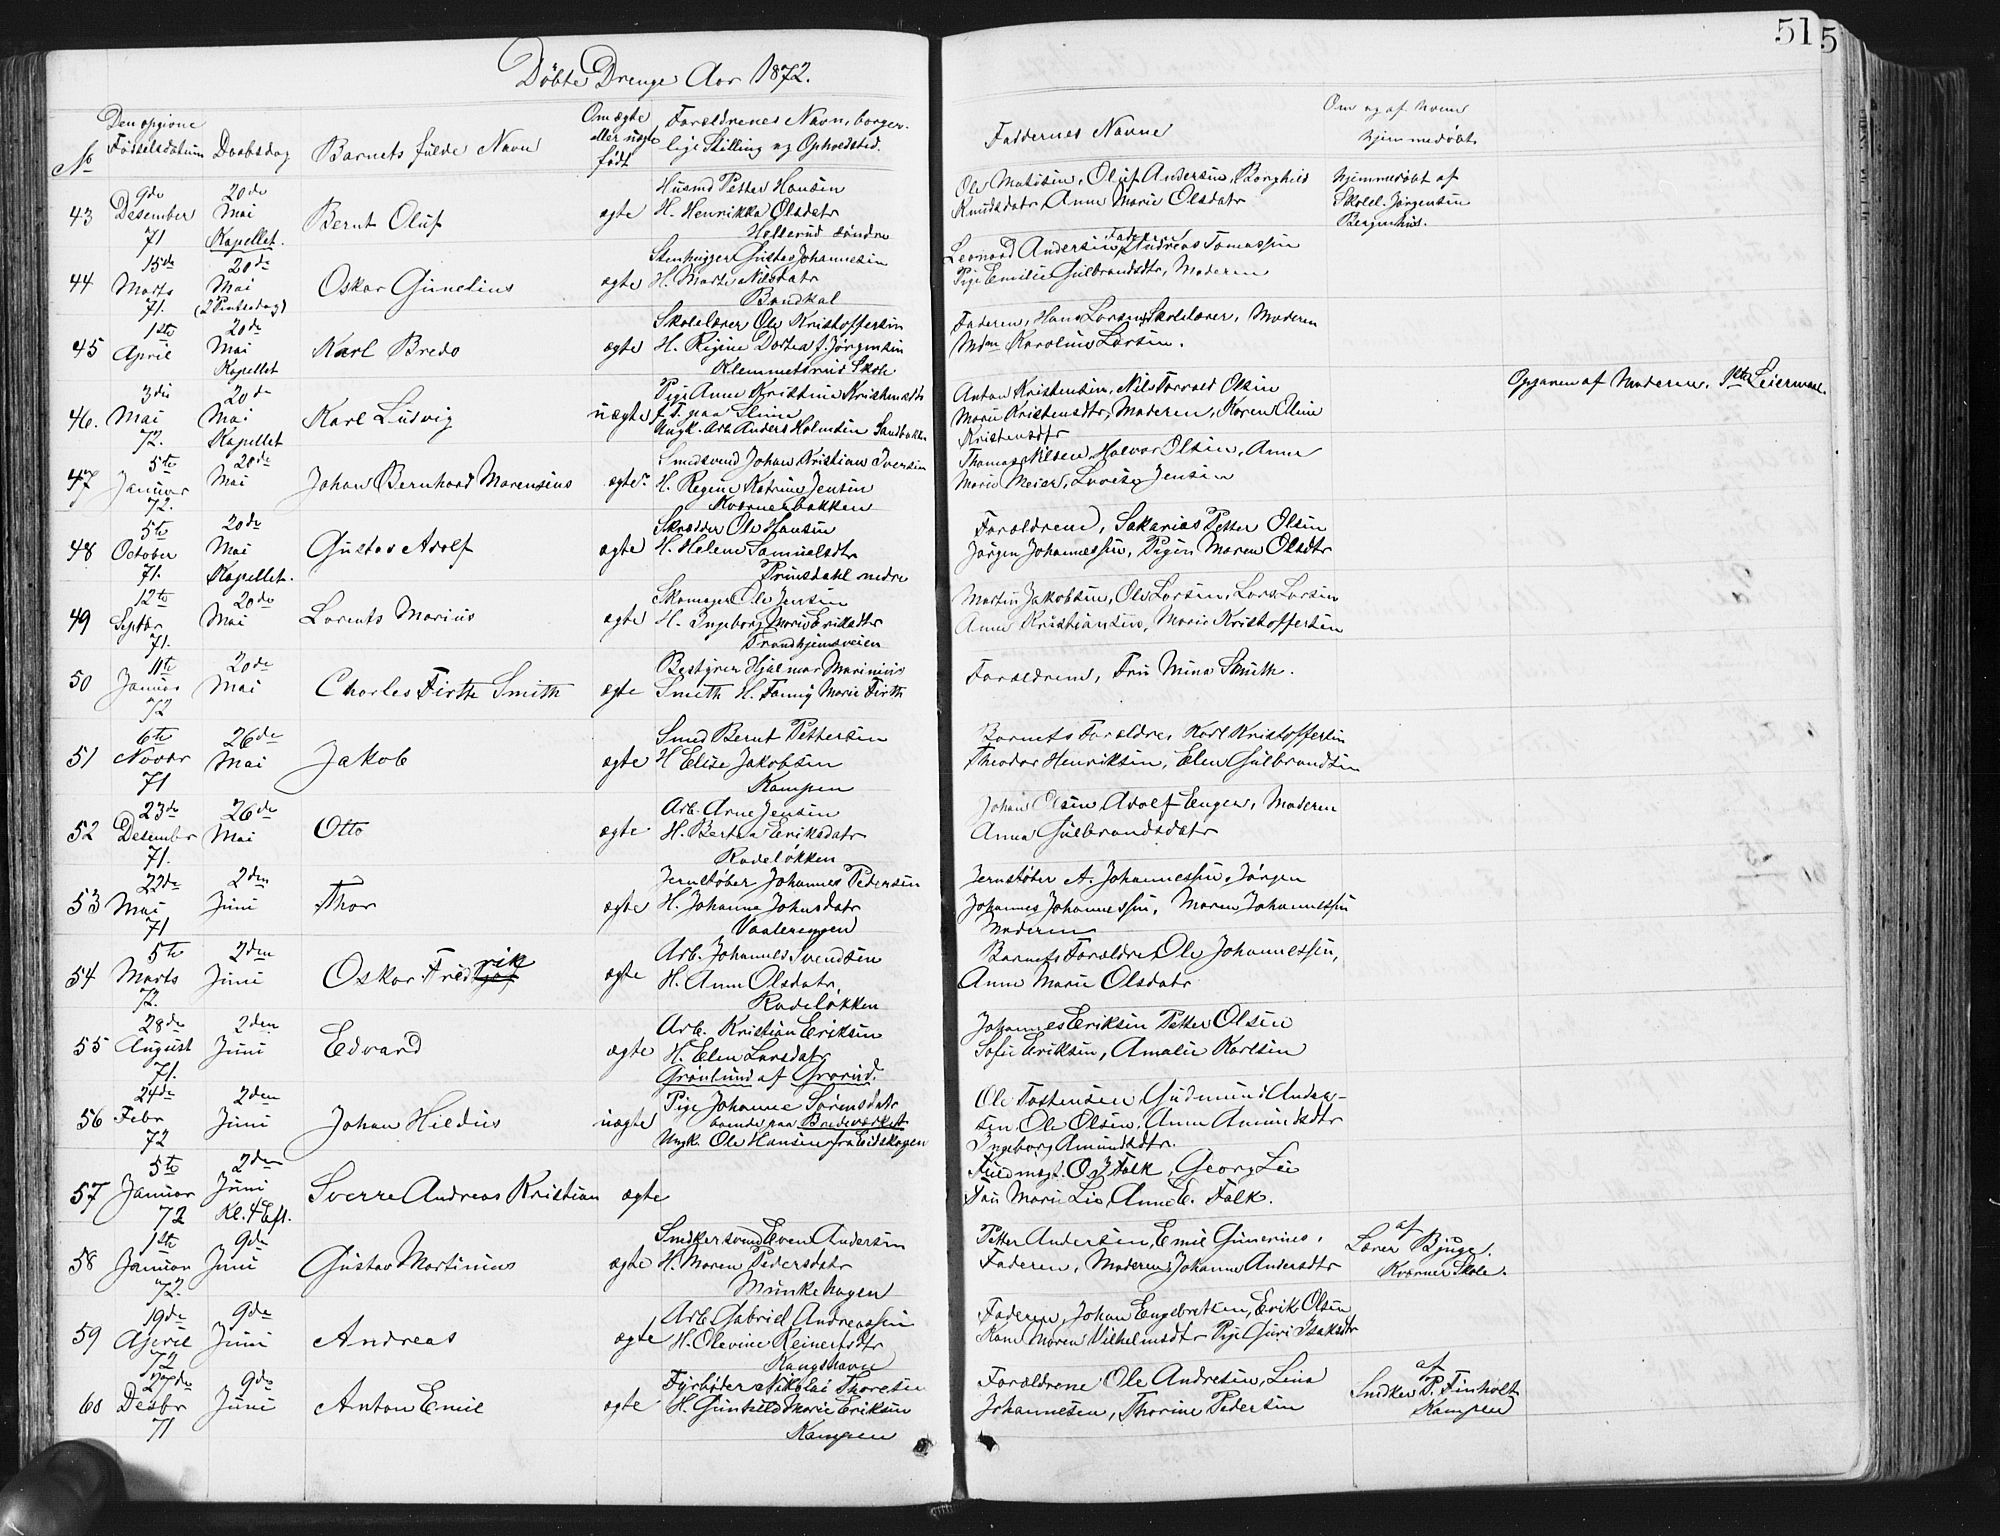 51
5
Döbte Drenge Aar 1872.
No
Den opgivne Födselsdatum
Daabsdag
Barnets fulde Navn
Om ægte eller uægte født
Forældrenes Navn, borgerlige Stilling og Opholdsted.
Faddernes Navne
Om og af hvem hjemmedøbt
43
9de Desember 71
20de Mai Kapellet.
Bernt Oluf
ægte
Husmd Petter Hansen
H. Henrikka Olsdatr
söndre
Ole Matisen, Oluf Andersen, Borghild
Knudsdatr, Anne Marie Olsdatr
Hjemmedøbt af
Skolel. Jørgensen
44
15de Marts 71.
20de Mai (2 Pintsedag)
Oskar Gunelius
ægte
Stenhugger Gustav Johannesen
H. Marte Nilsdatr
Leonard Andersen, Faderen, Andreas Tomassen
Pige Emilie Gulbrandsdtr, Moderen
45
1ste April
20de Mai Kapellet
Karl Bredo
ægte
Skolelærer Ole Kristoffersen
H. Regine Dortea f. Jørgensen
Klemmetsrud Skole
Faderen, Hans Larsen, Skolelærer, Moderen
Mdm Karoline Larsen.
46.
3die Mai 72.
20de Mai Kapellet
Karl Ludvig
uægte
Pige Anne Kristine Kristensdtr
f. T. paa
Ungk. Arb. Anders Holmsen Sandbakken
Anton Kristensen, Nils Torvald Olsen
Marie Kristensdtr, Moderen, Karen Oline
Kristensdtr
Opgaven af Moderen. Leiermaal.
47
5te Januar 72.
20de Mai
Johan Bernhard Marensius
ægte
Smedsvend Johan Kristian Iversen
H. Regine Katrine Jensen
Kværnerbakken
Thomas Nilsen, Halvor Olsen, Anne
Marie Meier, Lovise Jensen
48
5te October 71.
20de Mai Kapellet.
Gustav Adolf
ægte
Skrædder Ole Hansen
H. Helene Samuelsdtr
Prinsdahl nedre
Forældrene, Sakarias Petter Olsen
Jørgen Johannessen, Pigen Maren Olsdtr
49
12te Septbr 71.
20de Mai
Lorents Marius
ægte
Skomager Ole Jensen
H. Ingeborg Marie Eriksdtr
Trondhjemsveien
Martin Jakobsen, Ole Larsen, Lars Larsen
Anne Kristiansen, Marie Kristoffersen
50
11te Januar 72
20de Mai
Charles Firth Smith
ægte
Bestyrer Hjalmar Marinius
Smith H. Fanny Marie Firth
Forældrene, Fru Mina Smith.
51
6te Novbr 71
26de Mai
Jakob
ægte
Smed Bernt Pettersen
H Elise Jakobsen
Kampen
Barnets Forældre, Karl Kristoffersen
Theodor Henriksen, Elen Gulbrandsen
52
23de Desember 71.
26de Mai
Otto
ægte
Arb. Arne Jensen
H. Bertea Eriksdatr
Rodeløkken
Johan Olsen, Adolf Engen, Moderen
Anna Gulbrandsdatr
53
22de Mai 71
2den Juni
Thor
ægte
Jernstøber Johannes Pedersen
H. Johanne Johnsdatr
Vaalerengen
Jernstøber A. Johannessen, Jørgen
Johannes Johannessen, Maren Johannessen
Moderen
54
5te Marts 72.
2den Juni
Oskar Fredrik
ægte
Arb. Johannes Svendsen
H. Anne Olsdatr,
Rodeløkken
Barnets Forældre, Ole Johannessen,
Anne Marie Olsdatr
55
28de August 71.
2den Juni
Edvard
ægte
Arb. Kristian Eriksen
H. Elen Larsdatr
Grønlund af Grorud.
Johannes Eriksen Petter Olsen
Sofie Eriksen, Amalie Karlsen
56
24de Febr 72
2den Juni
Johan Hildus
uægte
Pige Johanne Sørensdatr
boende paa Bredeverket
Ungk. Ole Hansen fra Eidskogen
Ole Tostensen Gudmund Andersen,
Ole Olsen, Anne Amundsdtr
Ingeborg Amundsdtr.
57
5te Januar 72
2den Juni Kl. 4 Eft.
Sverre Andreas Kristian
ægte
Fuldmægt. O. J Falk, Georg Lie
Fru Marie Lie, Anne E. Falk.
58
1ste Januar 72.
9de Juni
Gustav Martinius
ægte
Snedkersvend Even Andersen
H. Maren Pedersdatr
Munkehagen
Petter Andersen, Emil Gunerius,
Faderen, Moderen, Johanne Andersdtr
af
Lærer Bjuge.
Kværner Skole.
59
19de April 72
9de Juni
Andreas
ægte
Arb. Gabriel Andreassen
H. Olevine Reinertsdtr
Kongshavn
Faderen, Johan Engebretsen, Erik Olsen
Kone Maren Vilhelmsdtr Pige Guri Isaksdtr
60
27de Desbr 71
9de Juni
Anton Emil
ægte
Fyrbøder Nikolai Thoresen
H. Gunhild Marie Eriksen
Kampen
Forældrene Ole Andresen, Lina
Johannesen, Thorine Pedersen
af
Snedker P. Finholt
Kampen